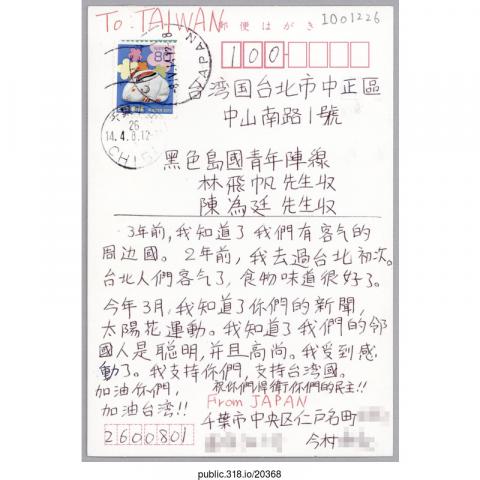 To: TAIWAN
郵便はがき
I001226
100-
JAPAN
14.4.8.12
CHI
台湾国台北市中正區
中山南路1號
黑色島國青年陣線
林飛帆先生收
陳為廷先生收
3年前,我知道了我們有客气的
周边國。2年前,我去過台北初次。
台北人們客气了,食物味道很好了。
今年3月,我知道了你們的新聞,
太陽花運動。我知道了我們的邻
國人是聪明,并且高尚。我受到感
動了。我支持你們,支持台湾國。
加油你們,祝你們得衛你們的民主!!
加油台湾!!
From JAPAN
千葉市中央区仁戸名町
今村
2600801
public.318.io/20368